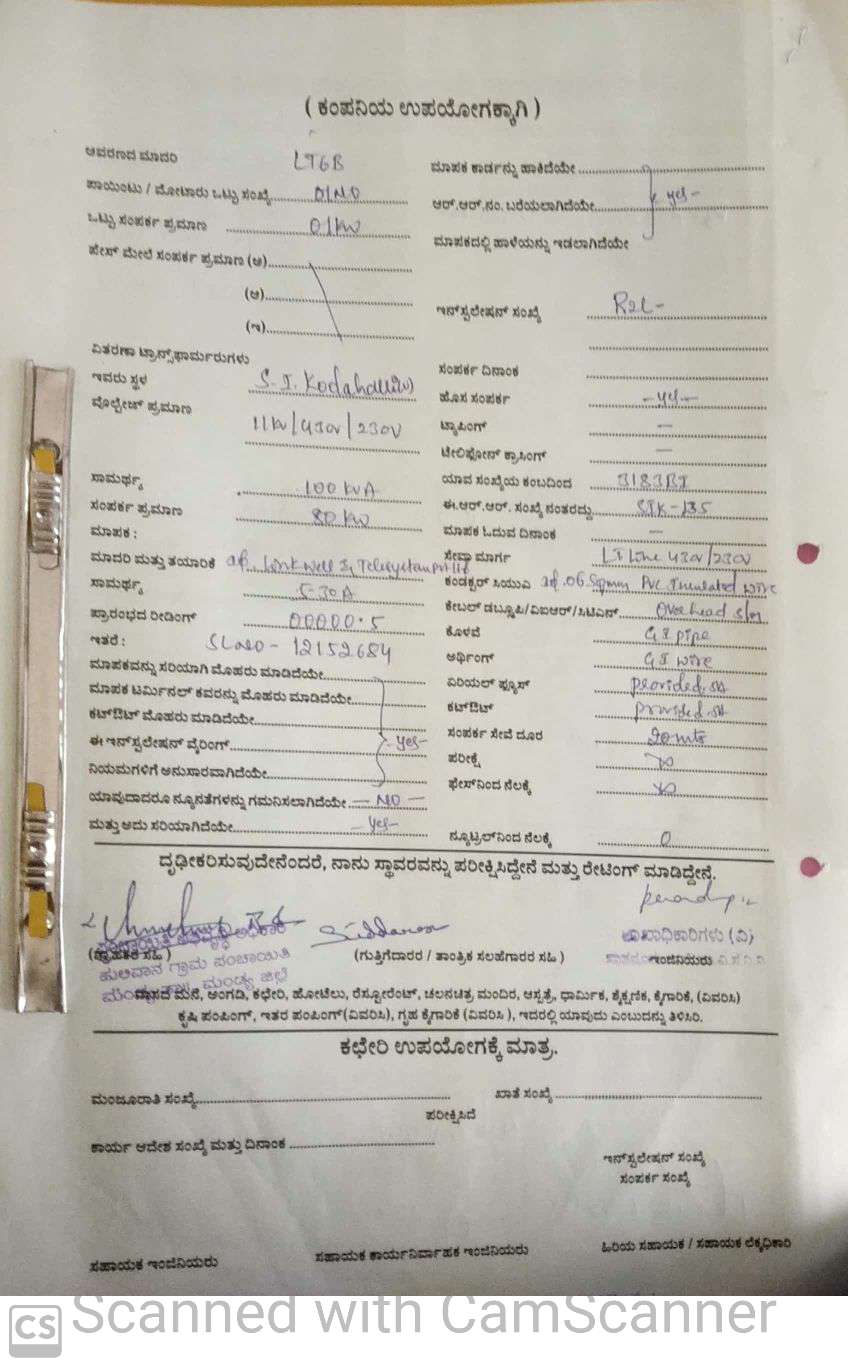 ( ಕಂಪನಿಯ ಉಪಯೋಗಕ್ಕಾಗಿ )
ಆವರಣದ ಮಾದರಿ LT6B
ಪಾಯಿಂಟು / ಮೋಟಾರು ಒಟ್ಟು ಸಂಖ್ಯೆ 01NO
ಒಟ್ಟು ಸಂಪರ್ಕ ಪ್ರಮಾಣ 01KW
ಫೇಸ್ ಮೇಲೆ ಸಂಪರ್ಕ ಪ್ರಮಾಣ (ಅ)
(ಆ)
(ಇ)
ವಿತರಣಾ ಟ್ರಾನ್ಸ್‌ಫಾರ್ಮರುಗಳು
ಇವರು ಸ್ಥಳ S.I. Kodahalli
ವೋಲ್ಟೇಜ್ ಪ್ರಮಾಣ 11KV/430V/230V
ಸಾಮರ್ಥ್ಯ 100 KVA
ಸಂಪರ್ಕ ಪ್ರಮಾಣ 80 KW
ಮಾಪಕ :
ಮಾದರಿ ಮತ್ತು ತಯಾರಿಕೆ Link Well
ಸಾಮರ್ಥ್ಯ 5-30A
ಪ್ರಾರಂಭದ ರೀಡಿಂಗ್ 00000.5
ಇತರೆ : SLNO - 12152684
ಮಾಪಕವನ್ನು ಸರಿಯಾಗಿ ಮೊಹರು ಮಾಡಿದೆಯೇ
ಮಾಪಕ ಟರ್ಮಿನಲ್ ಕವರನ್ನು ಮೊಹರು ಮಾಡಿದೆಯೇ
ಕಟ್‌ಔಟ್ ಮೊಹರು ಮಾಡಿದೆಯೇ
ಈ ಇನ್‌ಸ್ಟಲೇಷನ್ ವೈರಿಂಗ್ - yes -
ನಿಯಮಗಳಿಗೆ ಅನುಸಾರವಾಗಿದೆಯೇ
ಯಾವುದಾದರೂ ನ್ಯೂನತೆಗಳನ್ನು ಗಮನಿಸಲಾಗಿದೆಯೇ - NO -
ಮತ್ತು ಅದು ಸರಿಯಾಗಿದೆಯೇ - yes -
ಮಾಪಕ ಕಾರ್ಡನ್ನು ಹಾಕಿದೆಯೇ
ಆರ್.ಆರ್.ನಂ. ಬರೆಯಲಾಗಿದೆಯೇ yes -
ಮಾಪಕದಲ್ಲಿ ಹಾಳೆಯನ್ನು ಇಡಲಾಗಿದೆಯೇ
ಇನ್‌ಸ್ಟಲೇಷನ್ ಸಂಖ್ಯೆ
ಸಂಪರ್ಕ ದಿನಾಂಕ
ಹೊಸ ಸಂಪರ್ಕ - yes -
ಟ್ಯಾಪಿಂಗ್ -
ಟೆಲಿಫೋನ್ ಕ್ರಾಸಿಂಗ್ -
ಯಾವ ಸಂಖ್ಯೆಯ ಕಂಬದಿಂದ
ಈ.ಆರ್.ಆರ್. ಸಂಖ್ಯೆ ನಂತರದ್ದು SIK-135
ಮಾಪಕ ಓದುವ ದಿನಾಂಕ -
ಸೇವಾ ಮಾರ್ಗ LT Line 430V/230V
ಕಂಡಕ್ಟರ್ ಸಿಯುವಿ 06 Sqmm PVC Insulated wire
ಕೇಬಲ್ ಡಬ್ಲೂಪಿ/ವಿಐಆರ್/ಸಿಟಿಎಸ್ Overhead
ಕೊಳವೆ G I pipe
ಅರ್ಥಿಂಗ್ G I wire
ಏರಿಯಲ್ ಫ್ಯೂಸ್ provided
ಕಟ್‌ಔಟ್ provided
ಸಂಪರ್ಕ ಸೇವೆ ದೂರ 20 mts
ಪರೀಕ್ಷೆ
ಫೇಸ್‌ನಿಂದ ನೆಲಕ್ಕೆ
ನ್ಯೂಟ್ರಲ್‌ನಿಂದ ನೆಲಕ್ಕೆ 0
ದೃಢೀಕರಿಸುವುದೇನೆಂದರೆ, ನಾನು ಸ್ಥಾವರವನ್ನು ಪರೀಕ್ಷಿಸಿದ್ದೇನೆ ಮತ್ತು ರೇಟಿಂಗ್ ಮಾಡಿದ್ದೇನೆ.
ಪಂಚಾಯಿತಿ ಅಭಿವೃದ್ಧಿ ಅಧಿಕಾರಿ
(ಗ್ರಾಹಕರ ಸಹಿ) (ಗುತ್ತಿಗೆದಾರರ / ತಾಂತ್ರಿಕ ಸಲಹೆಗಾರರ ಸಹಿ) ಇಂಜಿನಿಯರು
ಹುಲಿವಾನ ಗ್ರಾಮ ಪಂಚಾಯಿತಿ
ಮಂಡ್ಯ ಜಿಲ್ಲೆ
ವಾಸದ ಮನೆ, ಅಂಗಡಿ, ಕಛೇರಿ, ಹೋಟೆಲು, ರೆಸ್ಟೋರೆಂಟ್, ಚಲನಚಿತ್ರ ಮಂದಿರ, ಆಸ್ಪತ್ರೆ, ಧಾರ್ಮಿಕ, ಶೈಕ್ಷಣಿಕ, ಕೈಗಾರಿಕೆ, (ವಿವರಿಸಿ)
ಕೃಷಿ ಪಂಪಿಂಗ್, ಇತರ ಪಂಪಿಂಗ್ (ವಿವರಿಸಿ), ಗೃಹ ಕೈಗಾರಿಕೆ (ವಿವರಿಸಿ), ಇದರಲ್ಲಿ ಯಾವುದು ಎಂಬುದನ್ನು ತಿಳಿಸಿರಿ.
ಕಛೇರಿ ಉಪಯೋಗಕ್ಕೆ ಮಾತ್ರ.
ಮಂಜೂರಾತಿ ಸಂಖ್ಯೆ ಖಾತೆ ಸಂಖ್ಯೆ
ಪರೀಕ್ಷಿಸಿದೆ
ಕಾರ್ಯ ಆದೇಶ ಸಂಖ್ಯೆ ಮತ್ತು ದಿನಾಂಕ
ಇನ್‌ಸ್ಟಲೇಷನ್ ಸಂಖ್ಯೆ
ಸಂಪರ್ಕ ಸಂಖ್ಯೆ
ಸಹಾಯಕ ಇಂಜಿನಿಯರು ಸಹಾಯಕ ಕಾರ್ಯನಿರ್ವಾಹಕ ಇಂಜಿನಿಯರು ಹಿರಿಯ ಸಹಾಯಕ / ಸಹಾಯಕ ಲೆಕ್ಕಧಿಕಾರಿ
CS Scanned with CamScanner